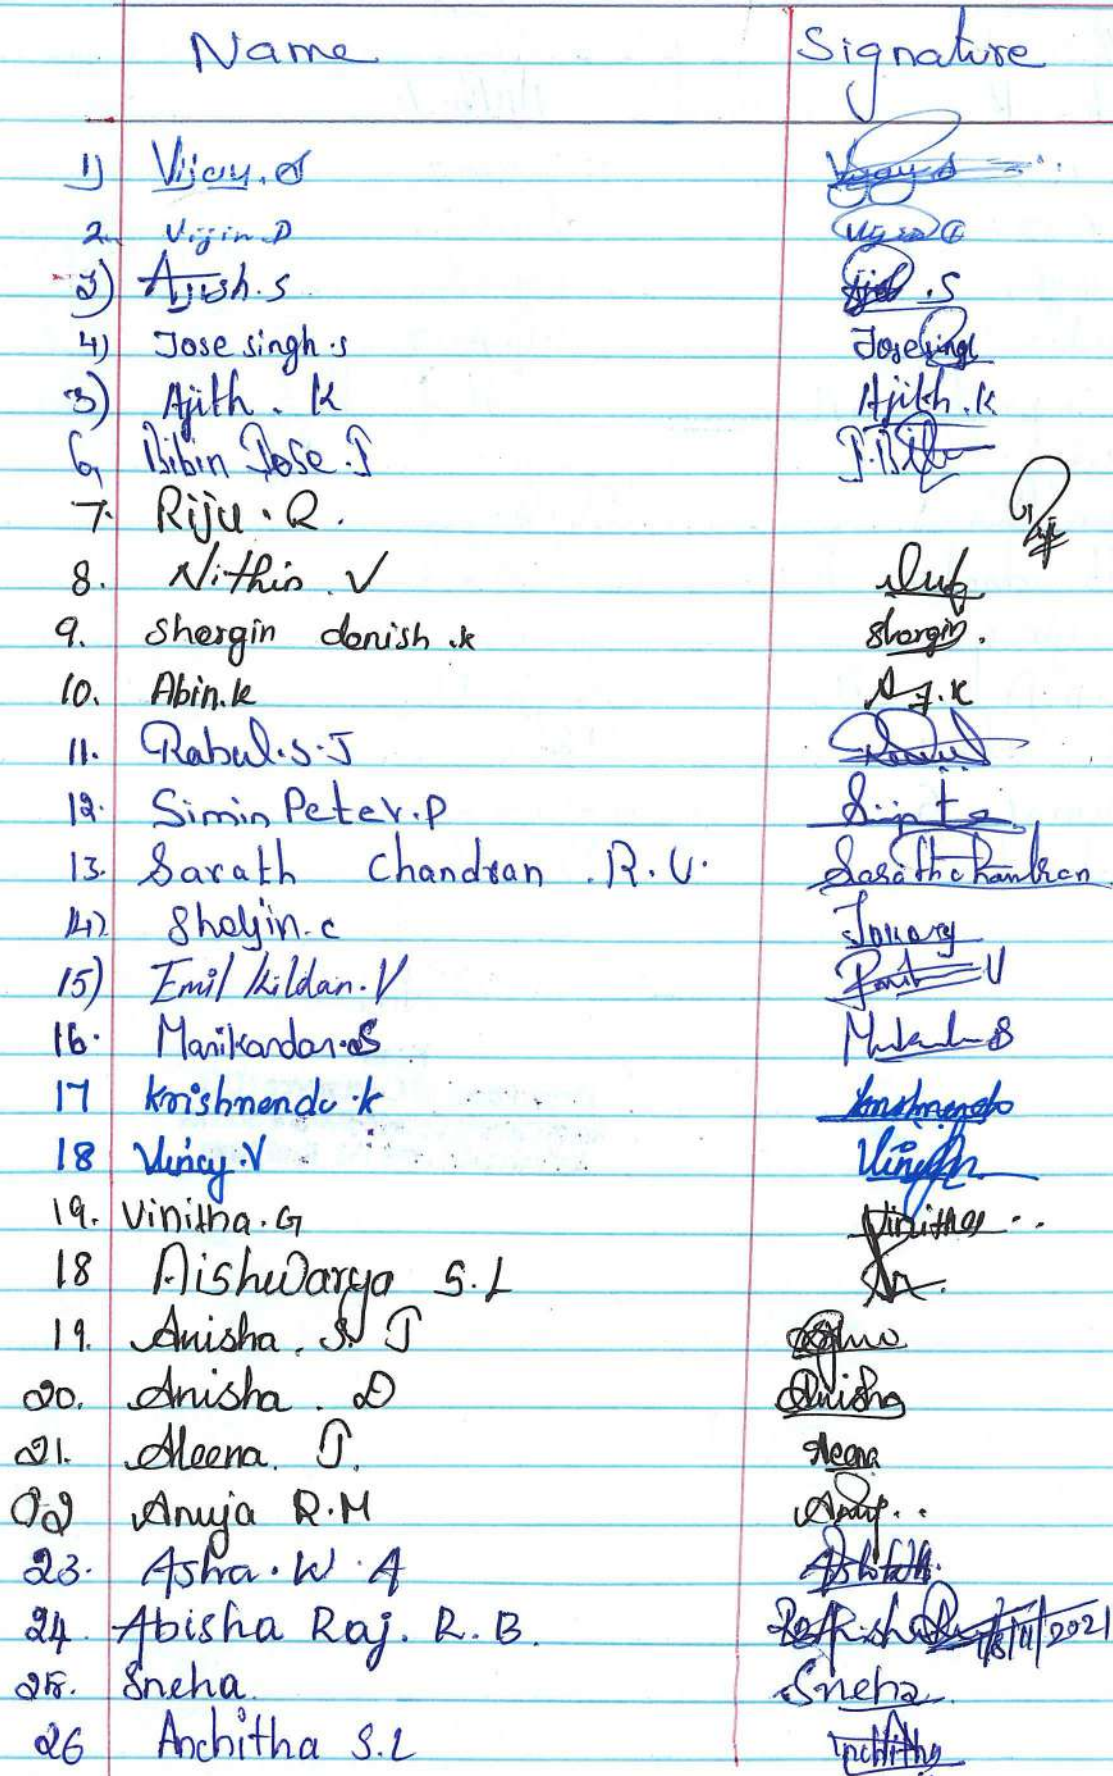 Name Signature
1) Vijay. S
2. Vijin.D
3) Ajish.S .S
4) Jose singh.s Jose Singh
5) Ajith. K Ajith.K
6, Bibin Jose.J
7. Riju.R.
8. Nithin. V
9. Shergin denish.k Shergin.
10. Abin.k A.J.K
11. Rahul.S.J
12. Simin Peter.P
13. Sarath Chandran .R.V. Sarath chandran
14). Shaljin.c
15) Emil kildan.V
16. Manikandan.S
17 Krishnendu.k Krishnendu
18 Vincy.V
19. Vinitha.G Vinitha
18 Aishwarya S.L
19. Anisha. S. J
20. Anisha. D Anisha
21. Aleena. J. Aleena
22 Anuja R.M
23. Asha.W.A
24. Abisha Raj. R.B. 18/11/2021
25. Sneha. Sneha.
26 Anchitha S.L